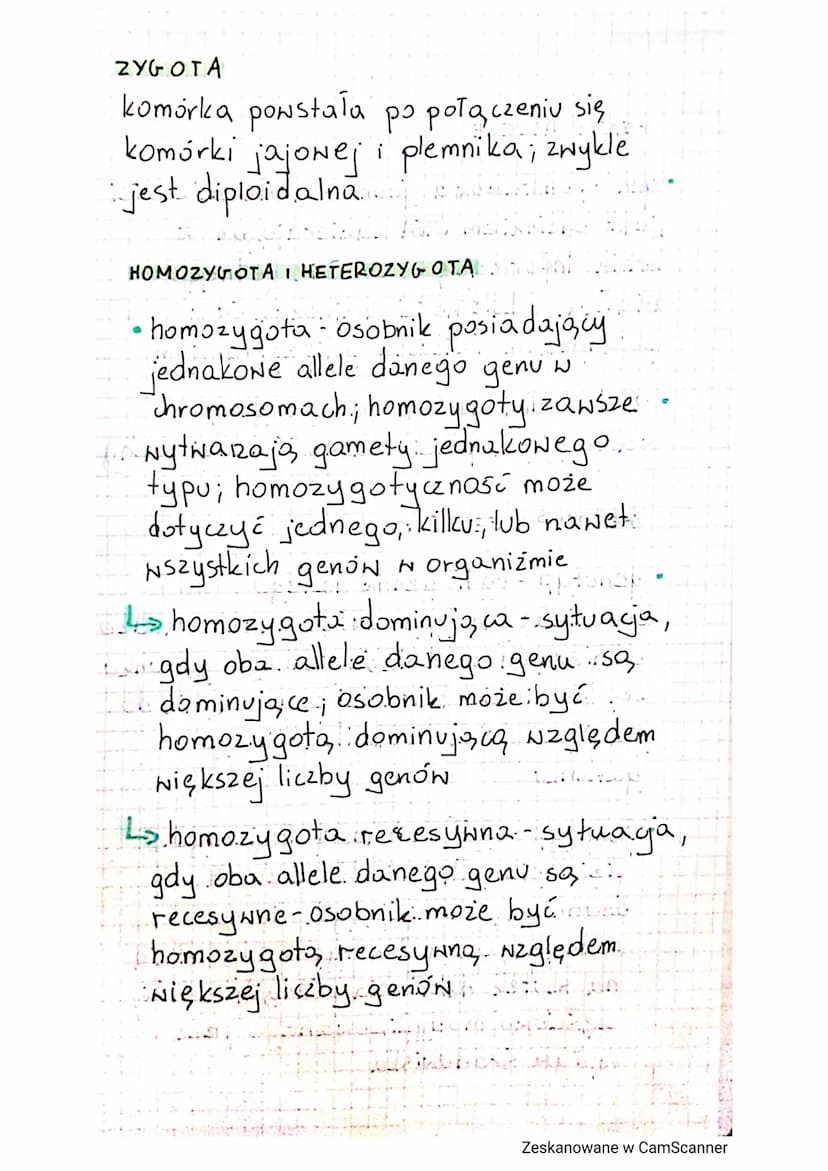 ZYGOTA
komórka powstała po połączeniu się
komórki jajowej i plemnika; zwykle
jest diploidalna
HOMOZYGOTA I HETEROZYGOTA
• homozygota - osobnik posiadający
jednakowe allele danego genu w
chromosomach; homozygoty zawsze
wytwarzają gamety jednakowego
typu; homozygotyczność może
dotyczyć jednego, kilku, lub nawet
wszystkich genów w organizmie
↳ homozygota dominująca - sytuacja,
gdy oba allele danego genu są
dominujące; osobnik może być
homozygotą dominującą względem
większej liczby genów
↳ homozygota recesywna - sytuacja,
gdy oba allele danego genu są
recesywne - osobnik może być
homozygotą recesywną względem
większej liczby genów
Zeskanowane w CamScanner